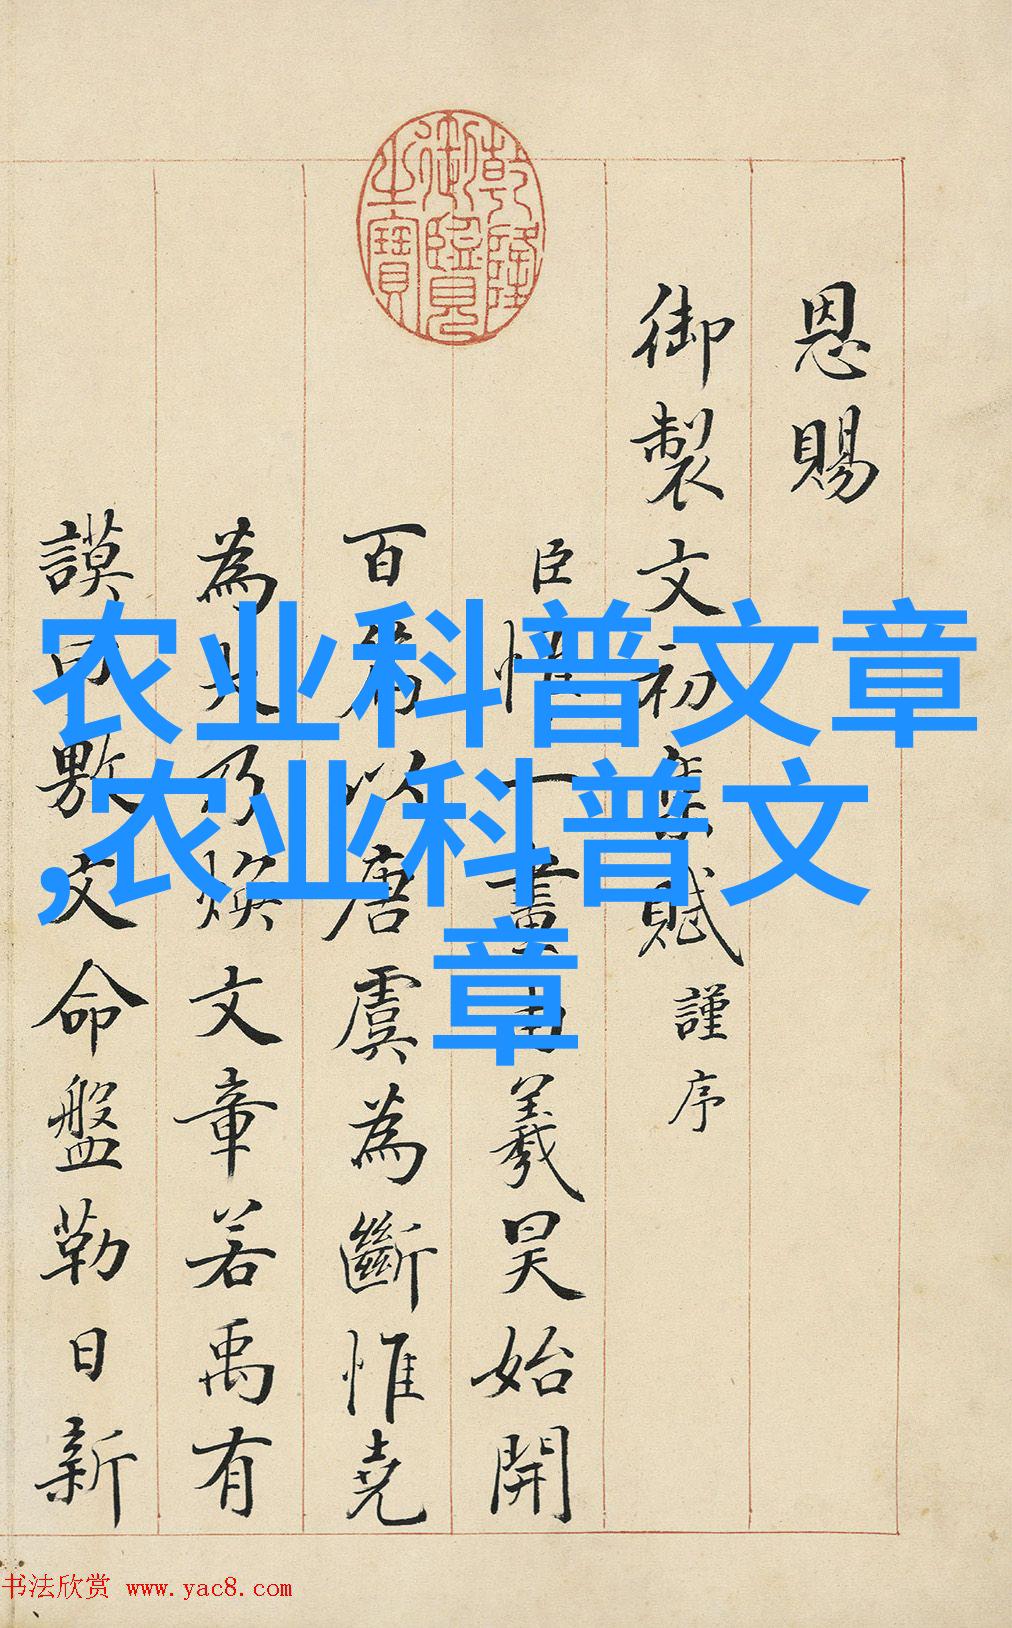 乾隆御覽之寶
恩賜
御製文初集賦謹序
臣惟一畫由羲昊始開
百以唐虞為斷惟堯
為大乃煥文章若禹有
謨敷文命盤勒日新
农业科普文章
,农业科普文
章
书法欣赏 www.yac8.com